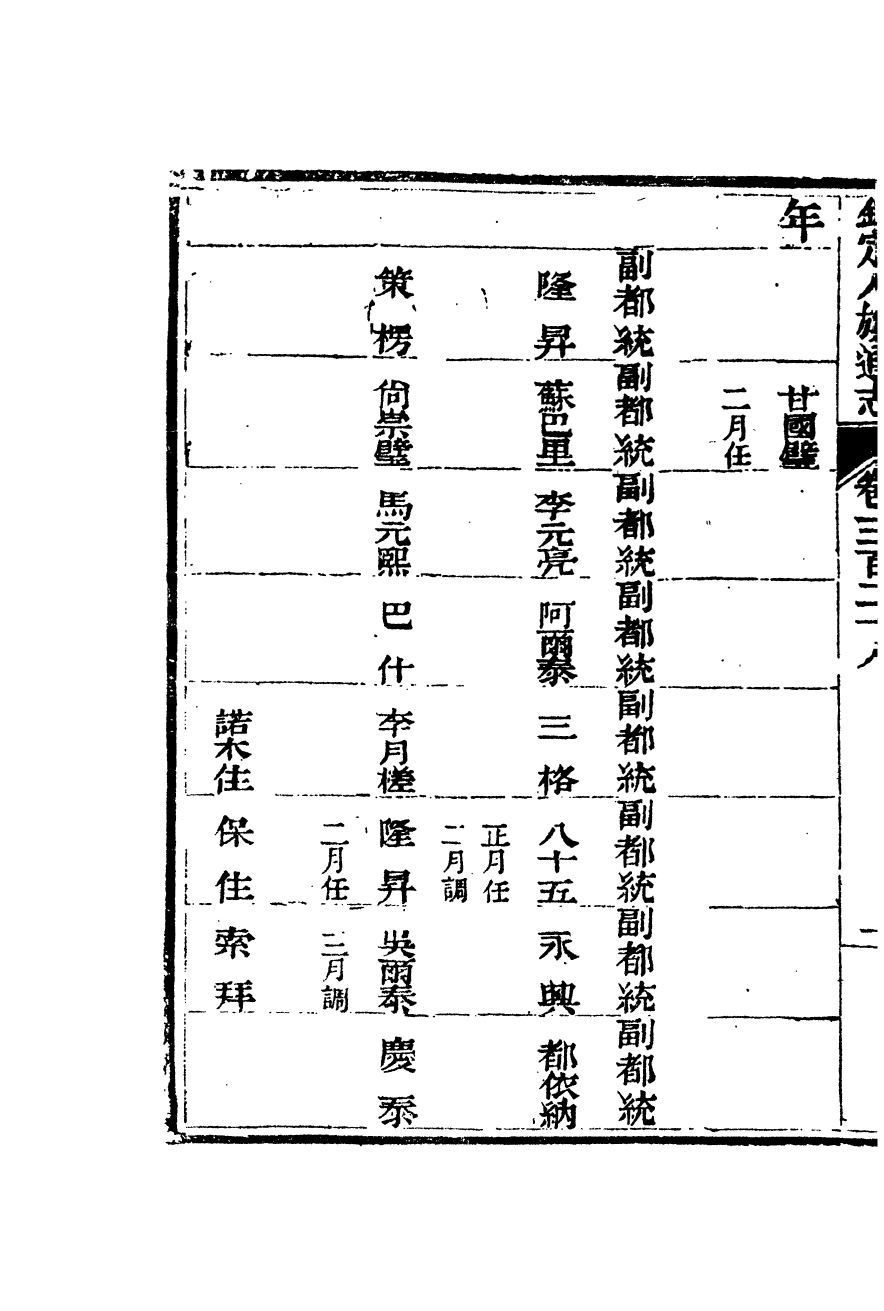 欽定八旗通志 卷三百二十八 二
年
甘國璧
二月任
副都統 副都統 副都統 副都統 副都統 副都統 副都統 副都統
隆昇 蘇巴里 李元亮 阿爾泰 三格 八十五 永興 都依納
正月任
二月調
策楞 尙崇璧 馬元熙 巴什 李月槎 隆昇 吳爾泰 慶泰
二月任 三月調
諾木住 保住 索拜